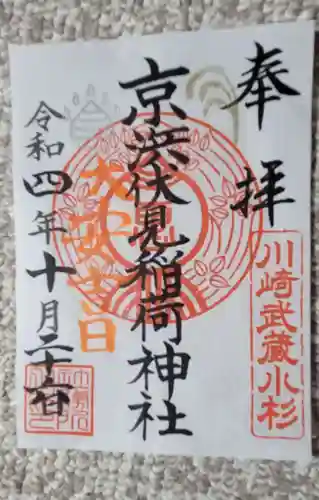 奉拝
川崎武蔵小杉
京濱伏見稲荷神社
大安吉日
令和四年十月二十六日